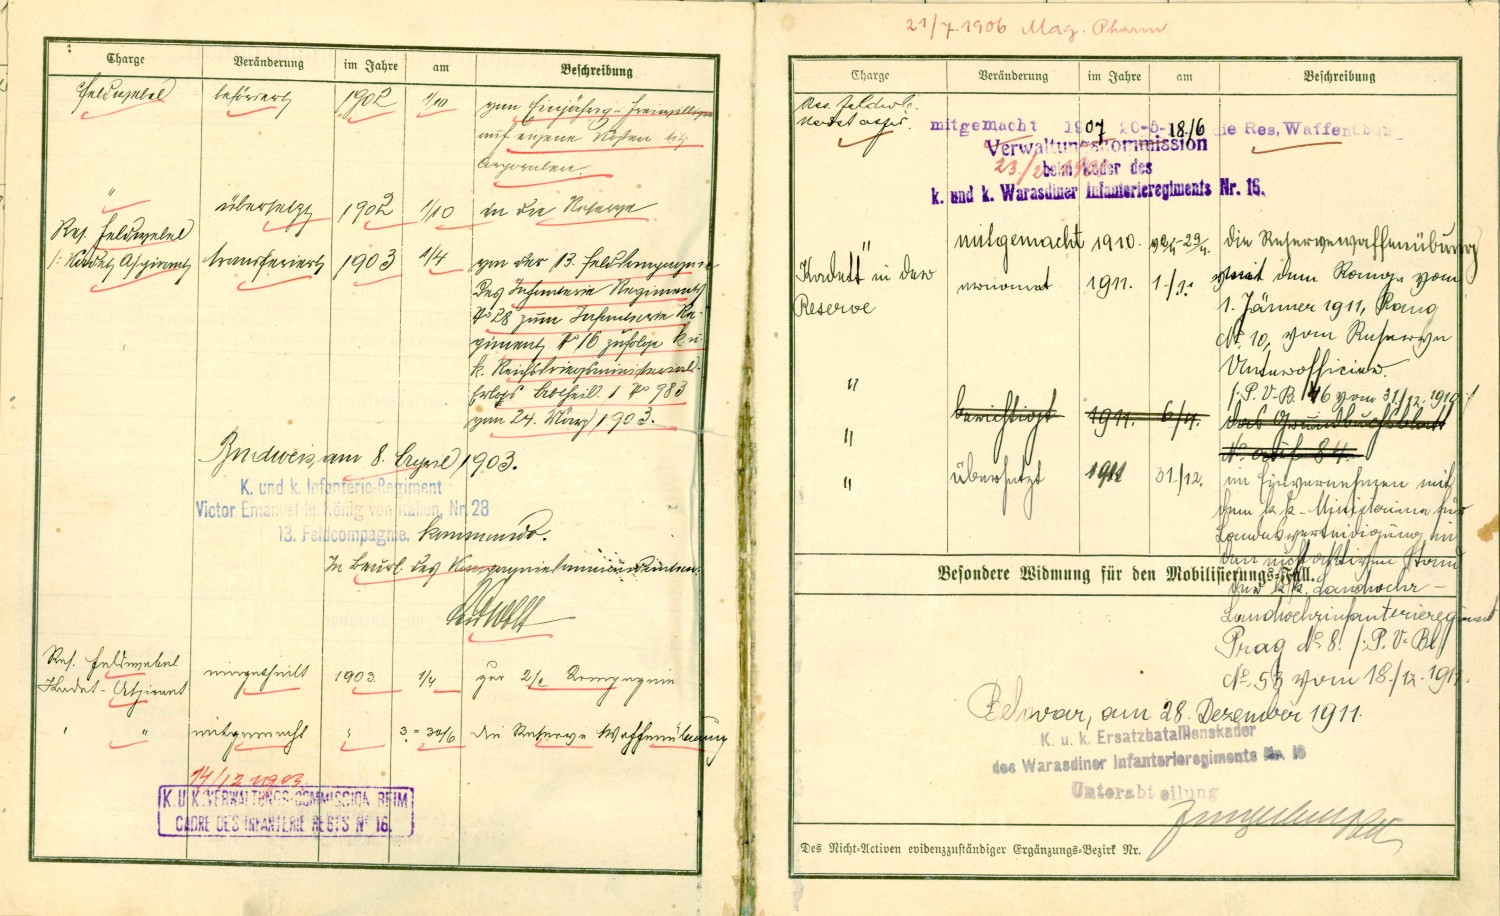 Charge Veränderung im Jahre am Beschreibung
Feldwebel befördert 1902 1/10 vom Einjährig-Freiwilligen
auf eigene Kosten tit.
Corporalen.
" übersetzt 1902 1/10 in die Reserve
Res. Feldwebel
/: Kadet Aspirant transferiert 1903 1/4 von der 13. Feldkompagnie
des Infanterie Regiments
№ 28 zum Infanterie Re-
giment № 16 zufolge k. u.
k. Reichskriegsministerial-
Erlass Abtheil. 1 № 983
vom 24. März 1903.
Budweis, am 8. April 1903.
K. und k. Infanterie-Regiment
Victor Emanuel III. König von Italien, Nr. 28
13. Feldcompagnie. Kommando.
In Beurl. des Kompagniekommandanten.
Res. Feldwebel
Kadet-Aspirant eingetheilt 1903 1/4 zur 2/2 Kompagnie
" " mitgemacht " 3.-30/6 die Reserve Waffenübung
14/12 1903.
K. U. K. VERWALTUNGS-COMMISSION BEIM
CADRE DES INFANTERIE REGTS Nº 16.
21/7. 1906 Mag. Pharm.
Charge Veränderung im Jahre am Beschreibung
Res. Feldwb.
Kadet aspir.
mitgemacht 1907 20-5- 18/6 die Res, Waffenübung
Verwaltungskommission
23./2.
beim Kader des
k. und k. Warasdiner Infanterieregiments Nr. 16.
" mitgemacht 1910. 2/4-29/4. die Reservewaffenübung
Kadett in der
Reserve ernannt 1911. 1./1. mit dem Range vom
1. Jänner 1911, Rang
№ 10, vom Reserve
Unterofficier.
/: P. V. B. 146 vom 31./12. 1910 :/
" berichtigt 1911. 6/4. das Grundbuchsblatt
№ auf 84.
" übersetzt 1911 31/12. im Einvernehmen mit
dem k. k. Ministerium für
Landesverteidigung in
den nichtaktiven Stand
Besondere Widmung für den Mobilisierungs-Fall.
der k. k. Landwehr-
Landwehrinfanterieregiment
Prag № 8. /: P. V. Bl
№ 53 vom 18./12. 1911.
Belovar, am 28. Dezember 1911.
K. u. k. Ersatzbataillonskader
des Warasdiner Infanterieregiments Nr. 16
Unterabteilung
Des Nicht-Activen evidenzzuständiger Ergänzungs-Bezirk Nr.